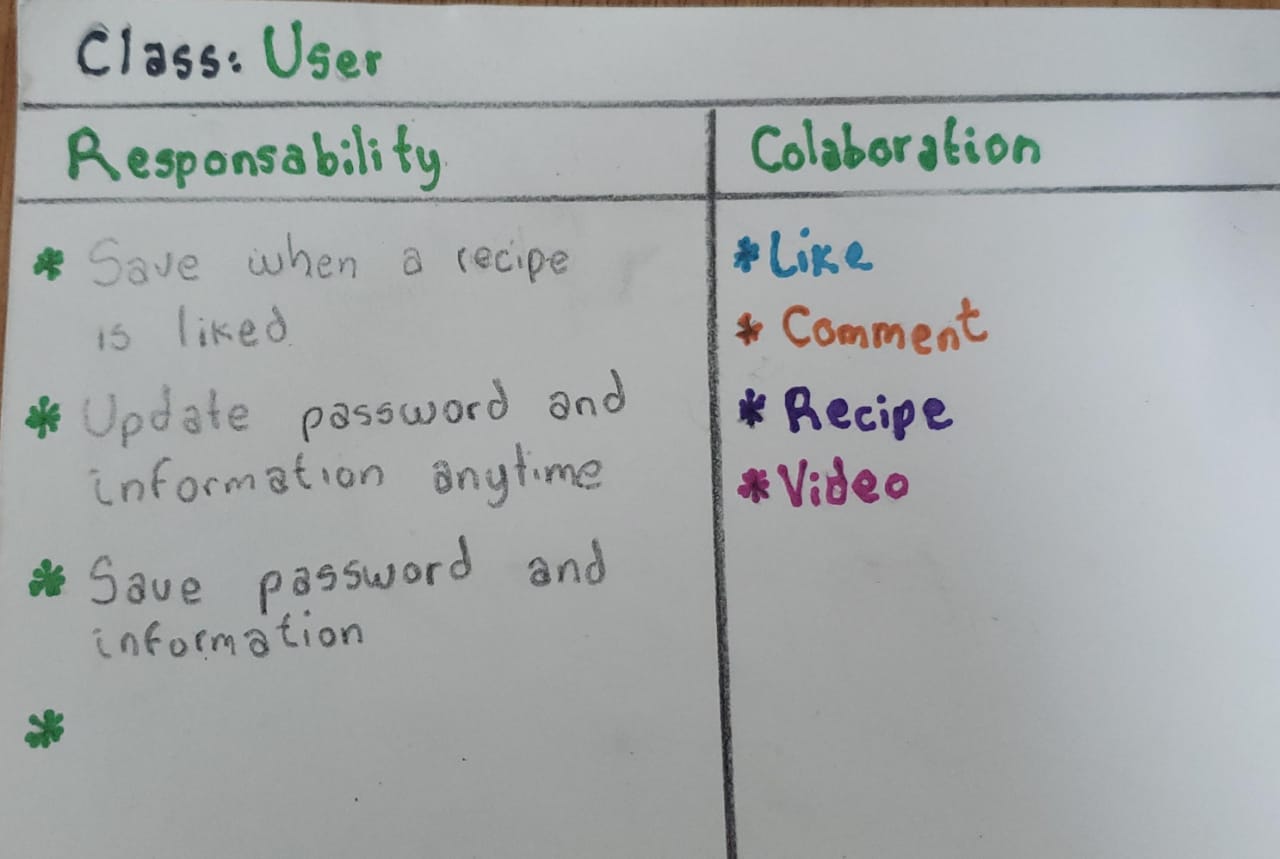 Class: User
Responsability
Colaboration
* Save when a recipe
is liked
* Update password and
information anytime
* Save password and
information
*
* Like
* Comment
* Recipe
* Video